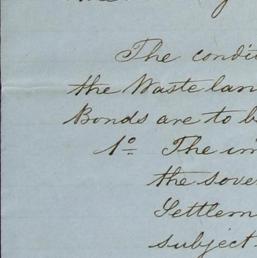 The condi
the Waste lan
Bonds are to b
1º The im
the sove
Settlem
subject